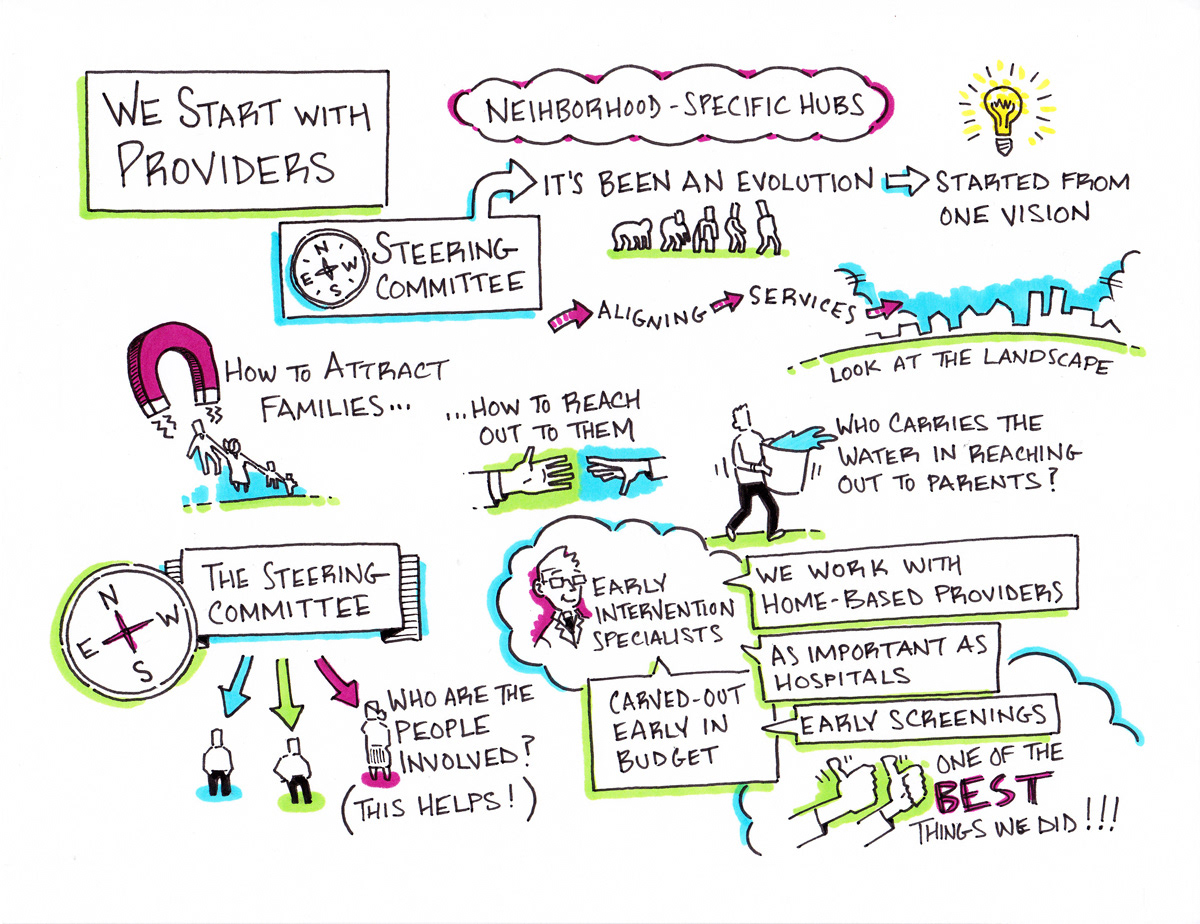 WE START WITH
PROVIDERS
NEIHBORHOOD-SPECIFIC HUBS
IT'S BEEN AN EVOLUTION
STARTED FROM
ONE VISION
N
E W
S
STEERING
COMMITTEE
ALIGNING
SERVICES
LOOK AT THE LANDSCAPE
HOW TO ATTRACT
FAMILIES...
...HOW TO REACH
OUT TO THEM
WHO CARRIES THE
WATER IN REACHING
OUT TO PARENTS?
N
E W
S
THE STEERING
COMMITTEE
WHO ARE THE
PEOPLE
INVOLVED?
(THIS HELPS!)
EARLY
INTERVENTION
SPECIALISTS
WE WORK WITH
HOME-BASED PROVIDERS
AS IMPORTANT AS
HOSPITALS
CARVED-OUT
EARLY IN
BUDGET
EARLY SCREENINGS
ONE OF THE
BEST
THINGS WE DID!!!